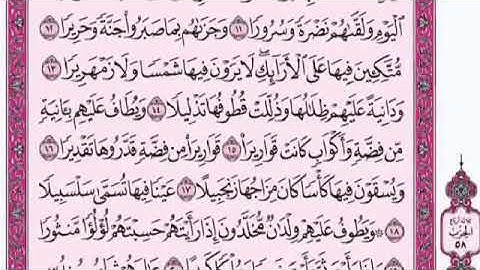 ٱلۡيَوۡمِ وَلَقَّىٰهُمۡ نَضۡرَةٗ وَسُرُورٗا ١١ وَجَزَىٰهُم بِمَا صَبَرُواْ جَنَّةٗ وَحَرِيرٗا ١٢
مُّتَّكِـِٔينَ فِيهَا عَلَى ٱلۡأَرَآئِكِۖ لَا يَرَوۡنَ فِيهَا شَمۡسٗا وَلَا زَمۡهَرِيرٗا ١٣
وَدَانِيَةً عَلَيۡهِمۡ ظِلَٰلُهَا وَذُلِّلَتۡ قُطُوفُهَا تَذۡلِيلٗا ١٤ وَيُطَافُ عَلَيۡهِم بِـَٔانِيَةٖ
مِّن فِضَّةٖ وَأَكۡوَابٖ كَانَتۡ قَوَارِيرَا۠ ١٥ قَوَارِيرَاْ مِن فِضَّةٖ قَدَّرُوهَا تَقۡدِيرٗا ١٦
وَيُسۡقَوۡنَ فِيهَا كَأۡسٗا كَانَ مِزَاجُهَا زَنجَبِيلًا ١٧ عَيۡنٗا فِيهَا تُسَمَّىٰ سَلۡسَبِيلٗا
١٨ ۞ وَيَطُوفُ عَلَيۡهِمۡ وِلۡدَٰنٞ مُّخَلَّدُونَ إِذَا رَأَيۡتَهُمۡ حَسِبۡتَهُمۡ لُؤۡلُؤٗا مَّنثُورٗا
الحزب
٥٨